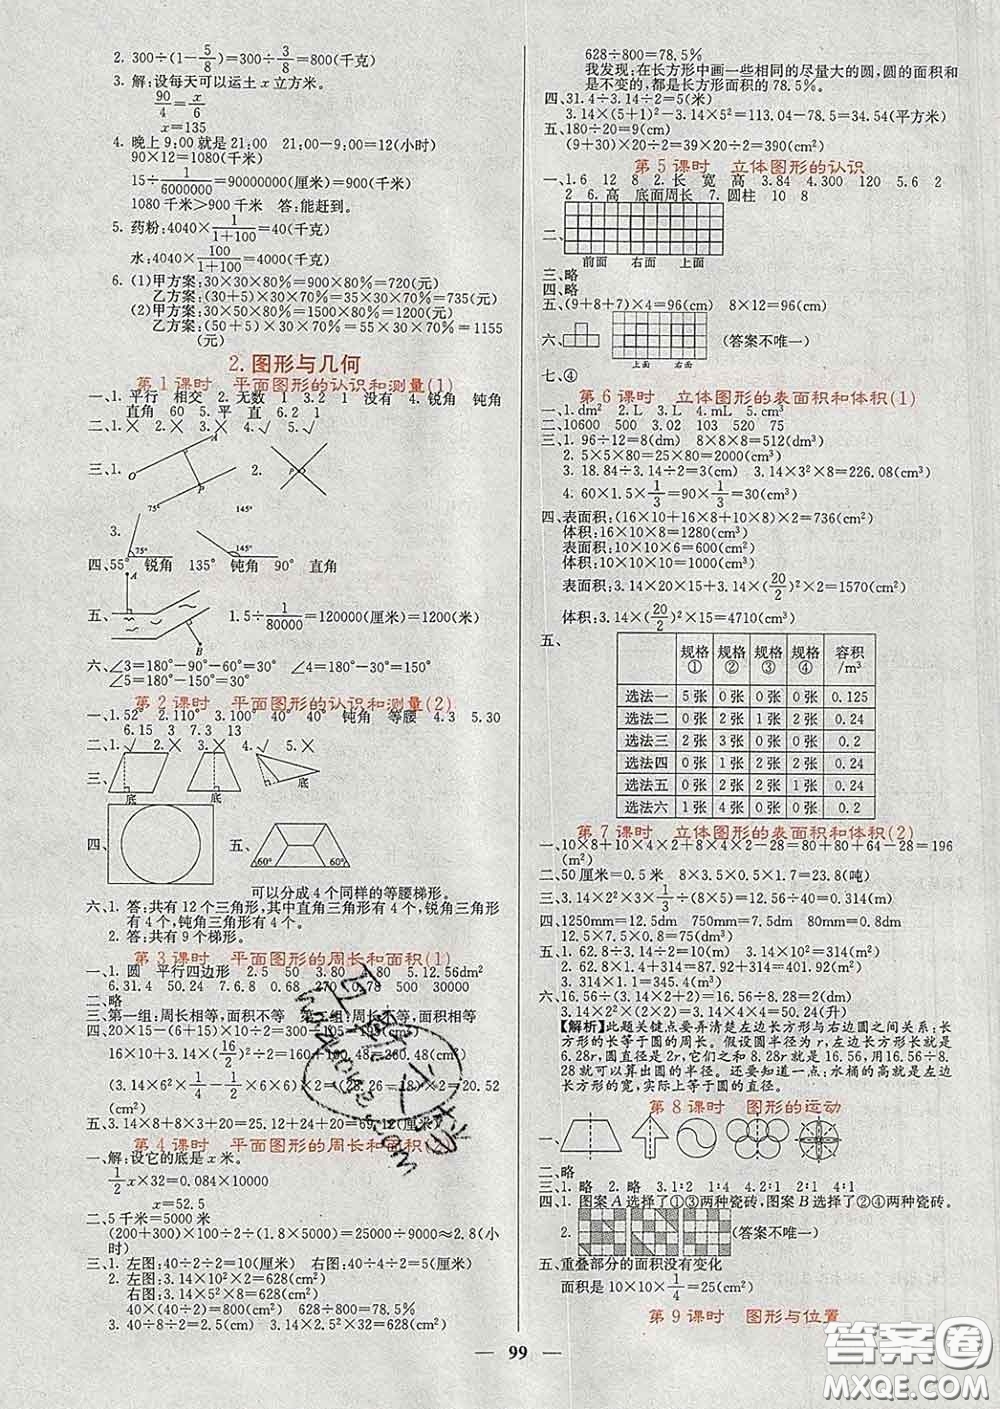 2. 300÷(1－5/8)＝300÷3/8＝800(千克)
3. 解:设每天可以运土 x 立方米.
90/4＝x/6
x＝135
4. 晚上 9:00 就是 21:00　21:00－9:00＝12(小时)
90×12＝1080(千米)
15÷1/6000000＝90000000(厘米)＝900(千米)
1080 千米＞900 千米　答:能赶到.
5. 药粉:4040×1/(1＋100)＝40(千克)
水:4040×100/(1＋100)＝4000(千克)
6. (1)甲方案:30×30×80％＝900×80％＝720(元)
乙方案:(30＋5)×30×70％＝35×30×70％＝735(元)
(2)甲方案:30×50×80％＝1500×80％＝1200(元)
乙方案:(50＋5)×30×70％＝55×30×70％＝1155
(元)
2.图形与几何
第 1 课时　平面图形的认识和测量(1)
一、1.平行　相交　2.无数　1　3.2　1　没有　4.锐角　钝角
直角　60　5.平　直　6.2　1
二、1.✕　2.✕　3.✕　4.√　5.√
三、1.　O　A　P　2.　P
75°　145°
3.　75°　145°
四、55°　锐角　135°　钝角　90°　直角
五、　A　B　1.5÷1/80000＝120000(厘米)＝1200(米)
六、∠3＝180°－90°－60°＝30°　∠4＝180°－30°＝150°
∠5＝180°－150°＝30°
第 2 课时　平面图形的认识和测量(2)
一、1.52°　2.110°　3.100°　40°　40°　钝角　等腰　4.3　5.30
6.15　3　7.3　13
二、1.√　2.✕　3.✕　4.√　5.✕
三、　底　底　底
四、　五、　60°　60°
可以分成 4 个同样的等腰梯形.
六、1. 答:共有 12 个三角形,其中直角三角形有 4 个,锐角三角形
有 4 个,钝角三角形有 4 个.
2. 答:共有 9 个梯形.
第 3 课时　平面图形的周长和面积(1)
一、1. 圆　平行四边形　2.5　50　3.80　4.80　5.12.56dm
6.31.4　50.24　7.6.8　0.68　270　0.78　500　300
二、略
三、第一组:周长相等,面积不等　第二组:周长不等,面积相等
四、20×15－(6＋15)×10÷2＝300－105＝195(cm²)
16×10＋3.14×(16/2)²÷2＝160＋100.48＝260.48(cm²)
(3.14×6²－1/2×6×6)×2＝(28.26－18)×2＝20.52
(cm²)
五、3.14×8＋3.14×4÷2×4＋20＝25.12＋24＋20＝69.12(厘米)
第 4 课时　平面图形的周长和面积
一、解:设它的底是 x 米.
1/2x×32＝0.084×10000
x＝52.5
二、5 千米＝5000 米
(200＋300)×100÷2÷(1.8×5000)＝25000÷9000≈2.8(小
时)
三、1. 左图:40÷2÷2＝10(厘米)　右图:40÷4÷2＝5(厘米)
2. 左图:3.14×10²×2＝628(cm²)
右图:3.14×5²×8＝628(cm²)
40×(40÷2)＝800(cm²)　628÷800＝78.5％
3. 40÷8÷2＝2.5(cm)　3.14×2.5²×32＝628(cm²)
628÷800＝78.5％
我发现:在长方形中画一些相同的尽量大的圆,圆的面积和
是不变的,都是长方形面积的 78.5％.
四、31.4÷3.14÷2＝5(米)
3.14×(5＋1)²－3.14×5²＝113.04－78.5＝34.54(平方米)
五、180÷20＝9(cm)
(9＋30)×20÷2＝39×20÷2＝390(cm²)
第 5 课时　立体图形的认识
一、1.6　12　8　2.长　宽　高　3.84　4.300　120　5.6　2
2　6.高　底面周长　7.圆柱　10　8
二、　前面　右面　上面
三、略
四、略
五、(9＋8＋7)×4＝96(cm)　8×12＝96(cm)
六、　上面　右面　(答案不唯一)
七、④
第 6 课时　立体图形的表面积和体积(1)
一、1.dm²　2.L　3.L　4.mL　5.cm³
二、10600　500　3.02　103　520　75
三、1. 96÷12＝8(dm)　8×8×8＝512(dm³)
2. 5×5×80＝25×80＝2000(cm³)
3. 18.84÷3.14÷2＝3(cm)　3.14×3²×8＝226.08(cm³)
4. 60×1.5×1/3＝90×1/3＝30(cm³)
四、表面积:(16×10＋16×8＋10×8)×2＝736(cm²)
体积:16×10×8＝1280(cm³)
表面积:10×10×6＝600(cm²)
体积:10×10×10＝1000(cm³)
表面积:3.14×20×15＋3.14×(20/2)²×2＝1570(cm²)
体积:3.14×(20/2)²×15＝4710(cm³)
五、
规格①　规格②　规格③　规格④　容积/m³
选法一　5 张　0 张　0 张　0 张　0.125
选法二　0 张　2 张　1 张　2 张　0.24
选法三　2 张　3 张　0 张　0 张　0.2
选法四　0 张　1 张　2 张　2 张　0.24
选法五　0 张　2 张　2 张　1 张　0.24
选法六　1 张　4 张　0 张　0 张　0.2
第 7 课时　立体图形的表面积和体积(2)
一、10×8＋10×4×2＋8×4×2－28＝80＋80＋64－28＝196
(m²)
二、50 厘米＝0.5 米　8×3.5×0.5×1.7＝23.8(吨)
三、3.14×2²×3×1/3÷(5×8)＝12.56÷40＝0.314(m)
四、1250mm＝12.5dm　750mm＝7.5dm　80mm＝0.8dm
12.5×7.5×0.8＝75(dm³)
五、1. 62.8÷3.14÷2＝10(m)　3.14×10²＝314(m²)
2. 62.8×3＋314＝188.4＋314＝502.4(m²)
3. 314×1.1＝345.4(m³)
六、16.56÷(3.14×2＋2)＝16.56÷8.28＝2(dm)
3.14×2²×(2×2)＝3.14×16＝50.24(升)
【解析】此题关键点要弄清楚左边长方形与右边圆之间关系:长
方形的长等于圆的周长.假设圆半径为 r,左边长方形长就是
6.28r,圆直径是 2r,它们之和 8.28r 就是 16.56,用 16.56÷8.
28 就可以算出圆的半径.还要知道一点:水桶的高就是左边
长方形的宽,实际上等于圆的直径.
第 8 课时　图形的运动
一、
二、略
三、1. 略　2. 略　3. 1∶2　1∶4　4. 2∶1　4∶1
四、1. 图案 A 选择了①③两种瓷砖,图案 B 选择了②④两种瓷砖.
2.　(答案不唯一)
五、重叠部分的面积没有变化
面积是 10×10×1/4＝25(cm²)
第 9 课时　图形与位置
— 99 —
答案圈
MXQE.COM